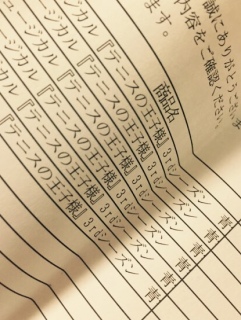 誠にありがとうござい
内容をご確認ください
ます。
商品名
ジカル『テニスの王子様』3rdシーズン 青
ュージカル『テニスの王子様』3rdシーズン 青
ージカル『テニスの王子様』3rdシーズン 青
ジカル『テニスの王子様』3rdシーズン 青
カル『テニスの王子様』3rdシーズン 青
『テニスの王子様』3rdシーズン